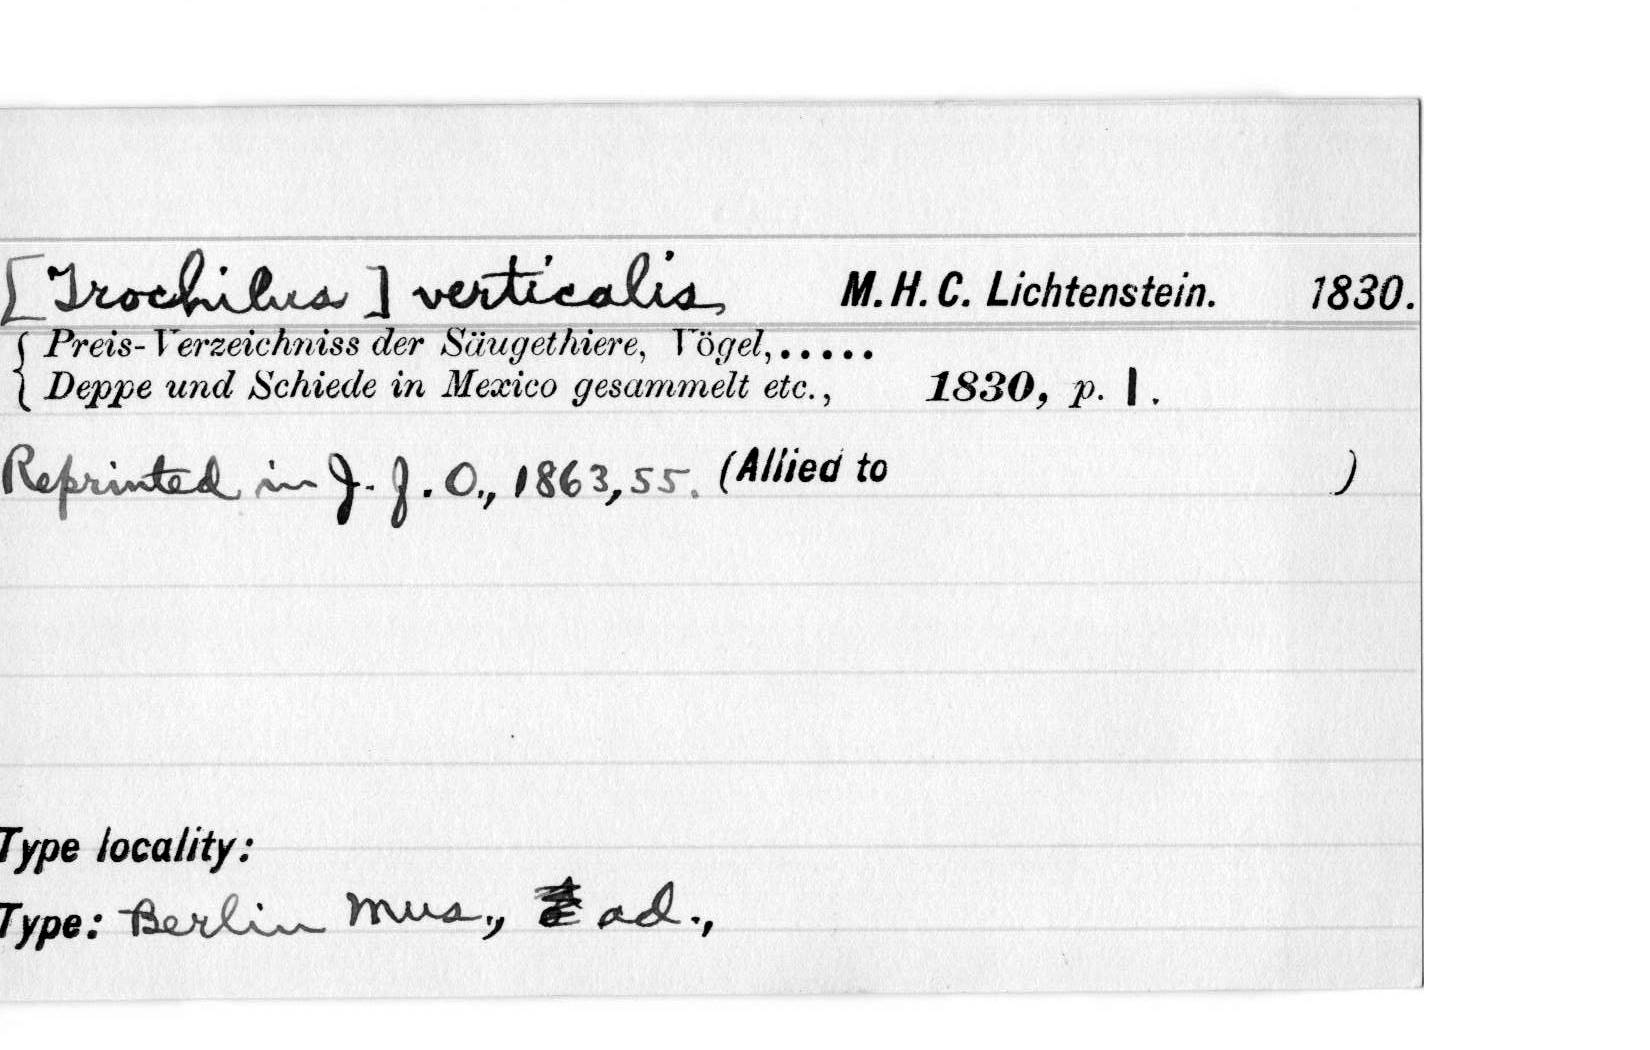 [Trochilus] verticalis M. H. C. Lichtenstein. 1830.
Preis-Verzeichniss der Säugethiere, Vögel,.....
Deppe und Schiede in Mexico gesammelt etc., 1830, p. 1.
Reprinted in J. f. O., 1863, 55. (Allied to )
Type locality:
Type: Berlin Mus., ad.,